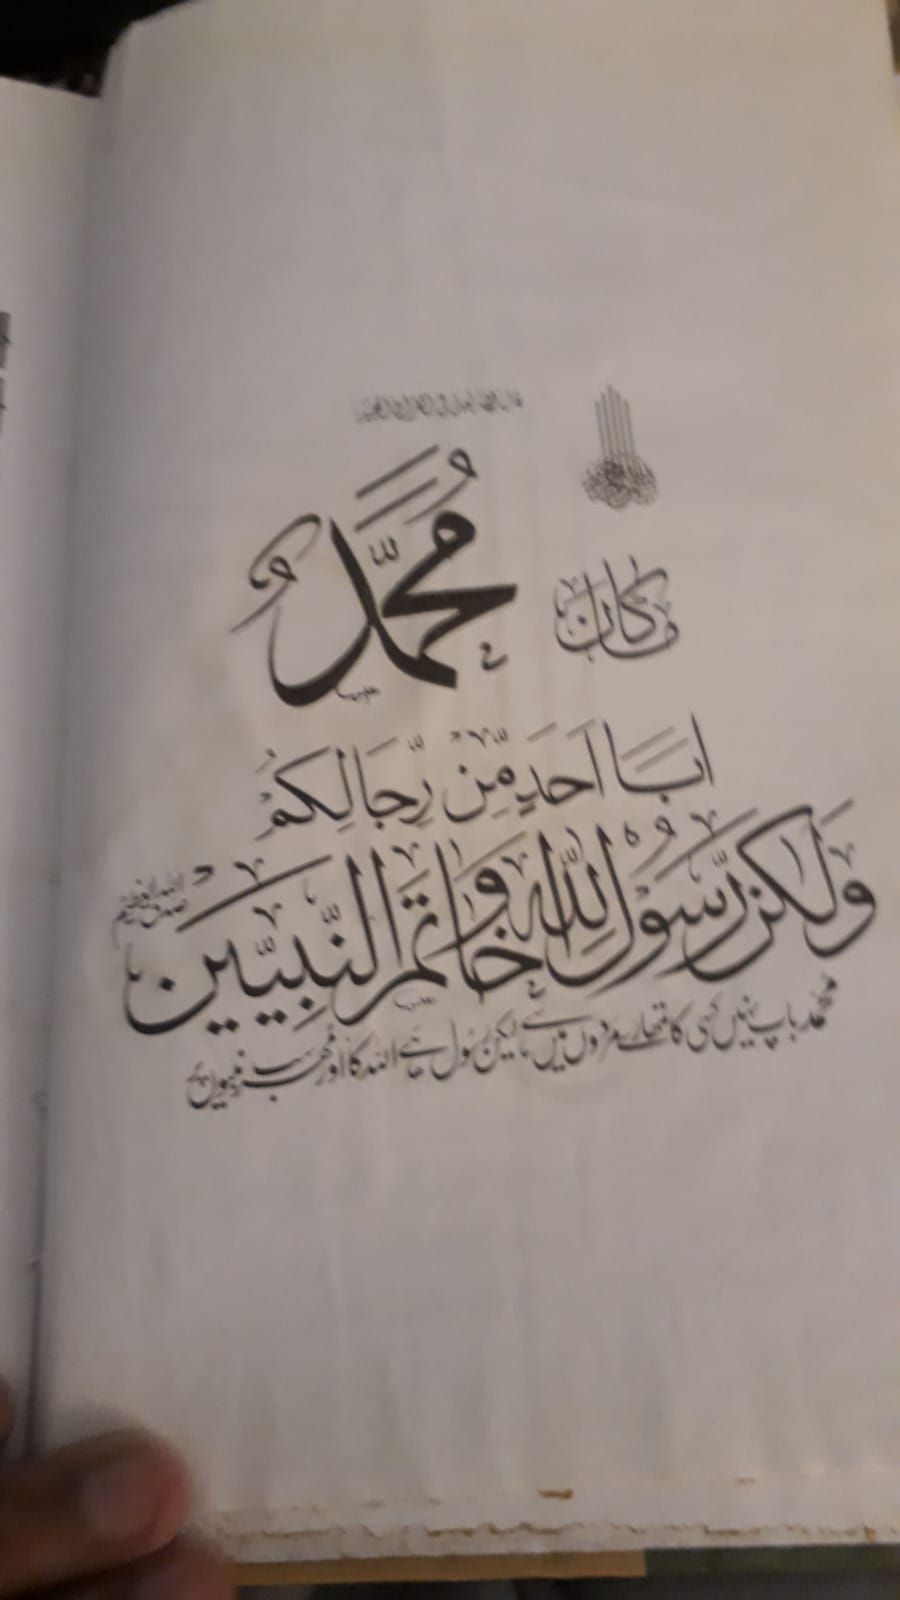 ما كان محمد
ابا احد من رجالكم
ولكن رسول الله وخاتم النبيين
صدق الله العظيم
محمد باپ نہیں کسی کا تمھارے مردوں میں سے لیکن رسول ہے اللہ کا اور مہر سب نبیوں پر